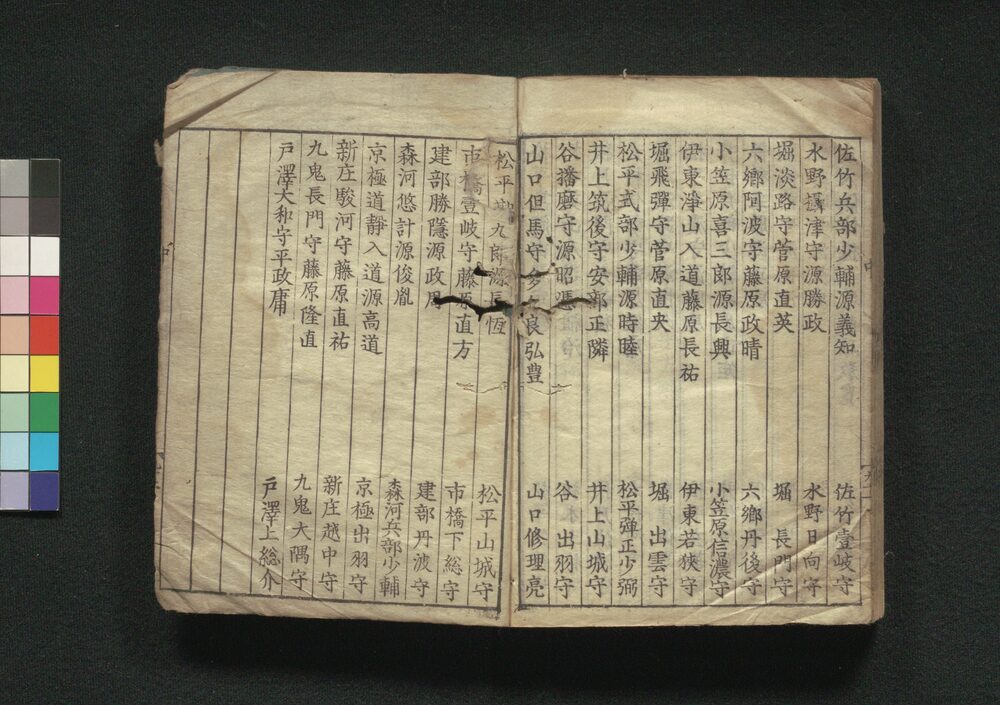 佐竹兵部少輔源義知 佐竹壹岐守
水野攝津守源勝政 水野日向守
堀淡路守菅原直英 堀 長門守
六鄉阿波守藤原政晴 六鄉丹後守
小笠原喜三郎源長興 小笠原信濃守
伊東淨山入道藤原長祐 伊東若狹守
堀飛彈守菅原直央 堀 出雲守
松平式部少輔源時睦 松平彈正少弼
井上筑後守安部正隣 井上山城守
谷播磨守源昭憑 谷 出羽守
山口但馬守多々良弘豊 山口修理亮
松平 九郎源長恆 松平山城守
市橋壹岐守藤原直方 市橋下総守
建部勝隱源政周 建部丹波守
森河悠計源俊胤 森河兵部少輔
京極道靜入道源高道 京極出羽守
新庄駿河守藤原直祐 新庄越中守
九鬼長門守藤原隆直 九鬼大隅守
戸澤大和守平政庸 戸澤上総介